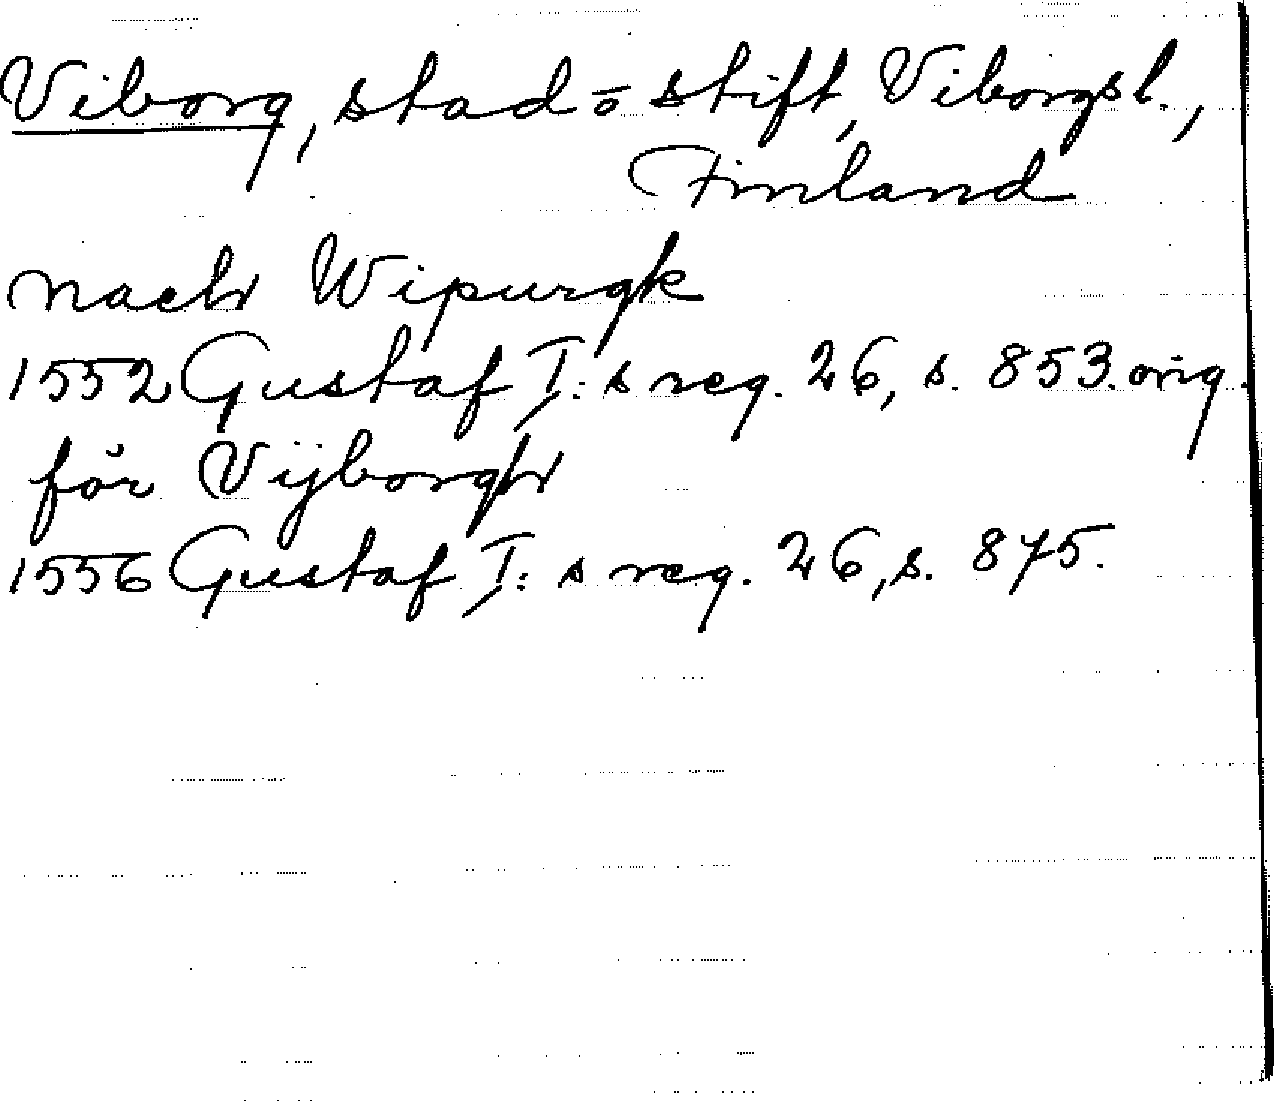 Viborg, stad o stift, Viborgsl.,
Finland
nach Wipurgk
1552 Gustaf I:s reg. 26, s. 853. orig.
för Vijborgh
1556 Gustaf I:s reg. 26, s. 875.